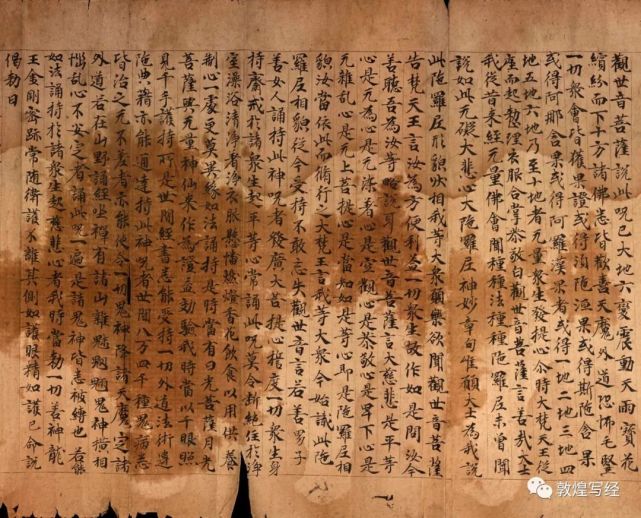 觀世音菩薩說此呪已大地六變震動天雨寶花
繽紛而下十方諸佛悉皆歡喜天魔外道恐怖毛竪
一切衆會皆獲果證或得湏陁洹果或得斯陁含果
或得阿那含果或得阿羅漢果者或得一地二地三地四
地五地六地乃至十地者无量衆生發菩提心尒時大梵天王從
座而起整理衣服合掌恭敬白觀世音菩薩言善哉大士
我從昔來經无量佛會聞種種法種種陁羅尼未曾聞
說如此无礙大悲心大陁羅尼神妙章句惟願大士為我說
此陁羅尼形貌狀相我等大衆願樂欲聞觀世音菩薩
告梵天王言汝為方便利益一切衆生故作如是問汝今
善聽吾為汝等略說少耳觀世音菩薩言大慈悲是平等
心是无為心是无染著心是空觀心是恭敬心是卑下心是
无雜乱心是无上菩提心是當知如是等心即是陁羅尼相
貌汝當依此而脩行之大梵王言我等大衆今始識此陁
羅尼相貌從今受持不敢忘失觀世音言若善男子
善女人誦持此神呪者發廣大菩提心誓度一切衆生身
持齋戒於諸衆生起平等心常誦此呪莫令斷絕住於淨
室澡浴清淨著淨衣服懸幡燃燈香花飲食以用供養
制心一處更莫異緣如法誦持是時當有日光菩薩月光
菩薩與无量神仙來作為證益効驗我時當以千眼照
見千手護持所是世間經書悉能受持一切外道法術違
陁典藉亦能通達持此神呪者世間八万四千種鬼病悉
皆治之无不差者亦能使令一切鬼神降諸天魔定諸
外道若在山野誦經坐禪有諸山雜魅魍魎鬼神橫相
惱乱心不安定者誦此呪一遍是諸鬼神皆悉被縛也若能
如法誦持於諸衆生起慈悲心者我時當勅一切善神龍
王金剛密跡常隨衛護不離其側如護眼精如護己命說
偈勅曰
敦煌写经